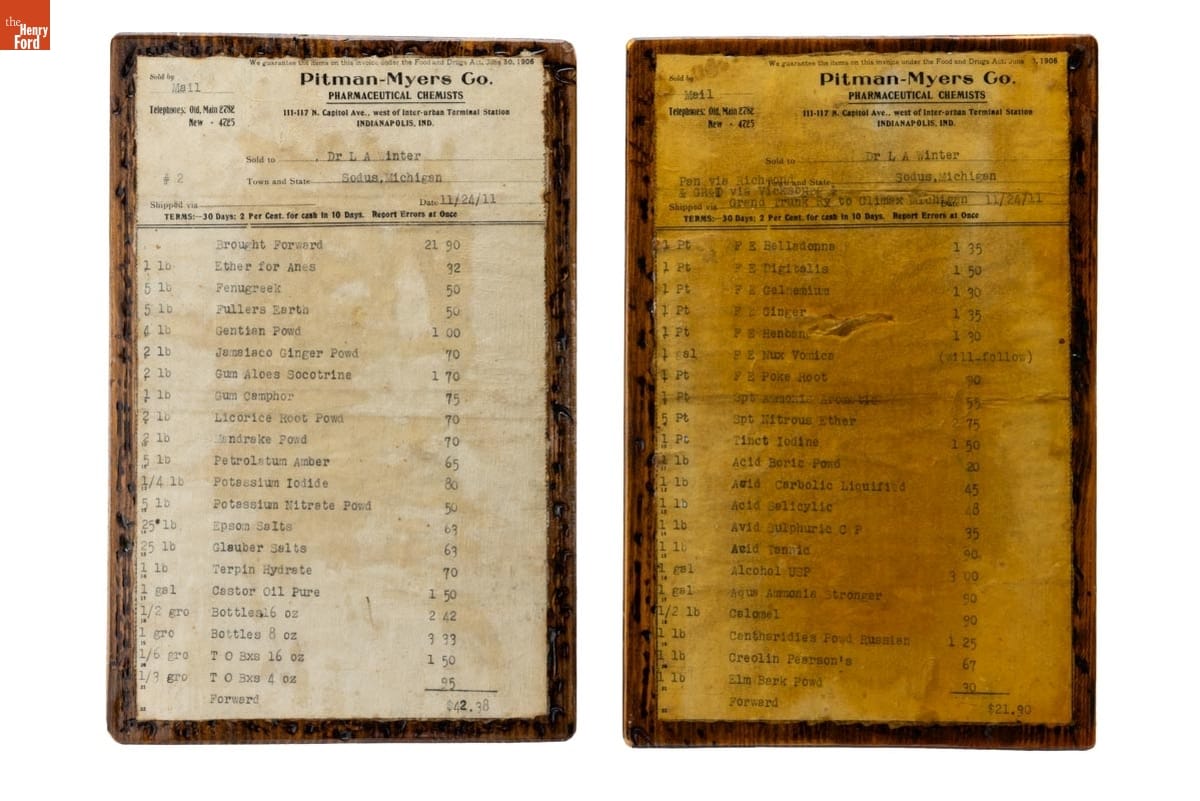 the
Henry
Ford
We guarantee the items on this invoice under the Food and Drugs Act, June 30, 1906
Sold by
Mail
Pitman-Myers Co.
PHARMACEUTICAL CHEMISTS
Telephones: Old, Main 2782
New " 4725
111-117 N. Capitol Ave., west of Inter-urban Terminal Station
INDIANAPOLIS, IND.
Sold to Dr L A Winter
# 2
Town and State Sodus,Michigan
Shipped via Date 11/24/11
TERMS:—30 Days; 2 Per Cent. for cash in 10 Days. Report Errors at Once
Brought Forward 21 90
1 lb Ether for Anes 32
5 lb Fenugreek 50
5 lb Fullers Earth 50
4 lb Gentian Powd 1 00
2 lb Jamaiaco Ginger Powd 70
2 lb Gum Aloes Socotrine 1 70
1 lb Gum Camphor 75
2 lb Licorice Root Powd 70
2 lb Mandrake Powd 70
5 lb Petrolatum Amber 65
1/4 lb Potassium Iodide 80
5 lb Potassium Nitrate Powd 50
25 lb Epsom Salts 63
25 lb Glauber Salts 63
1 lb Terpin Hydrate 70
1 gal Castor Oil Pure 1 50
1/2 gro Bottles 16 oz 2 42
1 gro Bottles 8 oz 3 33
1/6 gro T O Bxs 16 oz 1 50
1/3 gro T O Bxs 4 oz 95
Forward $42.38
We guarantee the items on this invoice under the Food and Drugs Act, June 1906
Sold by
Mail
Pitman-Myers Co.
PHARMACEUTICAL CHEMISTS
Telephones: Old, Main 2782
New " 4725
111-117 N. Capitol Ave., west of Inter-urban Terminal Station
INDIANAPOLIS, IND.
Sold to Dr L A Winter
Pan via Richmond
Town and State Sodus,Michigan
& GR&I via Vicksburg &
Shipped via Grand Trunk Ry to Climax Michigan Date 11/24/11
TERMS:—30 Days; 2 Per Cent. for cash in 10 Days. Report Errors at Once
1 Pt F E Belladonna 1 35
1 Pt F E Digitalis 1 50
1 Pt F E Gelsemium 1 30
1 Pt F E Ginger 1 35
1 Pt F E Henbane 1 30
1 gal F E Nux Vomica (will follow)
1 Pt F E Poke Root 90
1 Pt Spt Ammonia Aromatic 55
5 Pt Spt Nitrous Ether 2 75
1 Pt Tinct Iodine 1 50
1 lb Acid Boric Powd 20
1 lb Acid Carbolic Liquified 45
1 lb Acid Salicylic 48
1 lb Avid Sulphuric C P 35
1 lb Acid Tannic 90
1 gal Alcohol USP 3 00
1 gal Aqua Ammonia Stronger 90
1/2 lb Calomel 90
1 lb Cantharidies Powd Russian 1 25
1 lb Creolin Pearson's 67
1 lb Elm Bark Powd 30
Forward $21.90